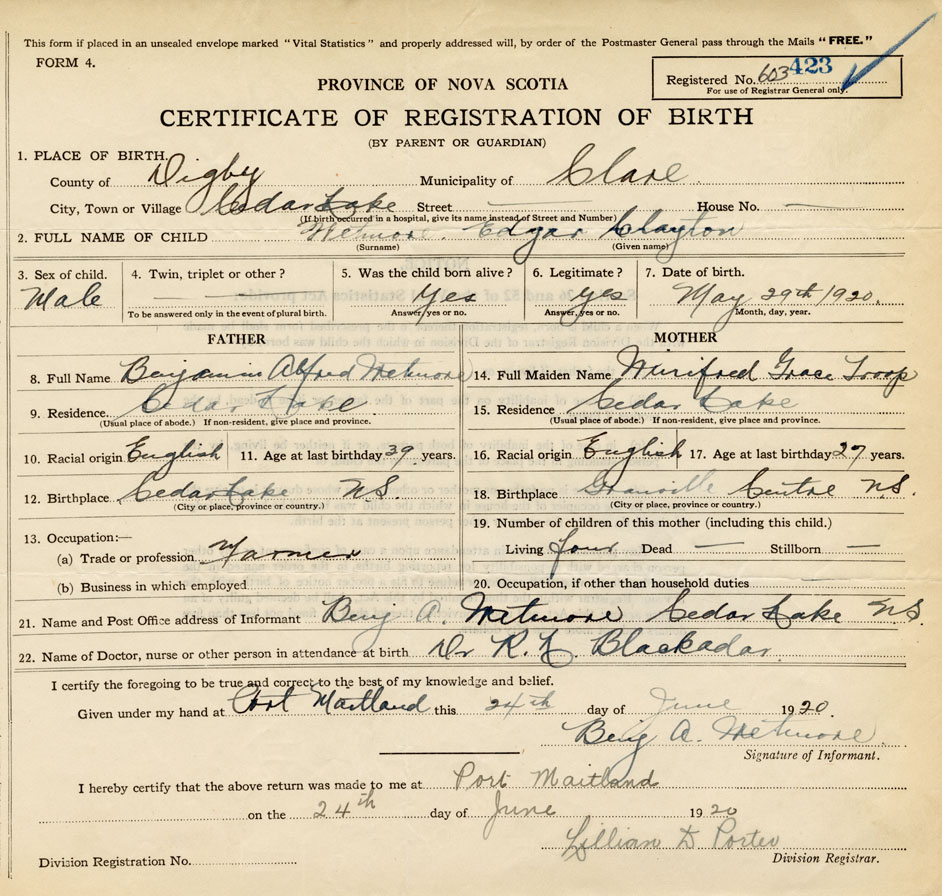 This form if placed in an unsealed envelope marked "Vital Statistics" and properly addressed will, by order of the Postmaster General pass through the Mails "FREE."
FORM 4.
Registered No. 603 423
For use of Registrar General only.
PROVINCE OF NOVA SCOTIA
CERTIFICATE OF REGISTRATION OF BIRTH
(BY PARENT OR GUARDIAN)
1. PLACE OF BIRTH.
County of Digby Municipality of Clare
City, Town or Village Cedar Lake Street — House No. —
(If birth occurred in a hospital, give its name instead of Street and Number)
2. FULL NAME OF CHILD Wetmore. Edgar Clayton
(Surname) (Given name)
3. Sex of child. 4. Twin, triplet or other? 5. Was the child born alive? 6. Legitimate? 7. Date of birth.
Male — — Yes Yes May 29th 1920.
To be answered only in the event of plural birth. Answer, yes or no. Answer, yes or no. Month, day, year.
FATHER MOTHER
8. Full Name Benjamin Alfred Wetmore 14. Full Maiden Name Winifred Grace Troop
9. Residence. Cedar Lake 15. Residence Cedar Lake
(Usual place of abode.) If non-resident, give place and province. (Usual place of abode.) If non-resident, give place and province.
10. Racial origin English 11. Age at last birthday 39 years. 16. Racial origin English 17. Age at last birthday 27 years.
12. Birthplace Cedar Lake N.S. 18. Birthplace Granville Centre N.S.
(City or place, province or country.) (City or place, province or country.)
13. Occupation:— 19. Number of children of this mother (including this child.)
(a) Trade or profession Farmer Living four Dead — Stillborn —
(b) Business in which employed 20. Occupation, if other than household duties —
21. Name and Post Office address of Informant Benj A. Wetmore Cedar Lake N.S.
22. Name of Doctor, nurse or other person in attendance at birth Dr Blackadar
I certify the foregoing to be true and correct to the best of my knowledge and belief.
Given under my hand at Port Maitland this 24th day of June 1920.
Benj A. Wetmore.
Signature of Informant.
I hereby certify that the above return was made to me at Port Maitland
on the 24th day of June 1920
Lillian D Porter
Division Registration No. Division Registrar.